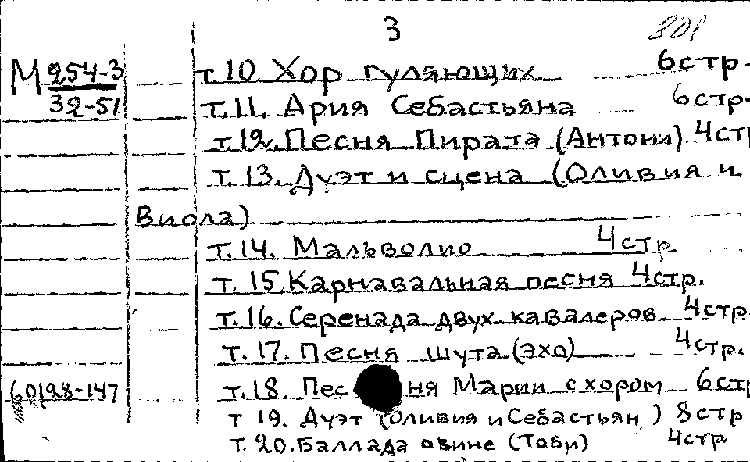 3 801
М 254-3 т.10 Хор гуляющих 6стр.
32-51 т.11. Ария Себастьяна 6стр.
т.12. Песня Пирата (Антони) 4стр
т.13. Дуэт и сцена (Оливия и
Виола)
т.14. Мальволио 4стр
т.15. Карнавальная песня 4стр.
т.16. Серенада двух кавалеров 4стр.
т.17. Песня шута (эхо) 4стр.
60198-147 т.18. Пес ня Марии с хором 6стр
т 19. Дуэт (Оливия и Себастьян) 8стр
т.20. Баллада овине (Тоби) 4стр